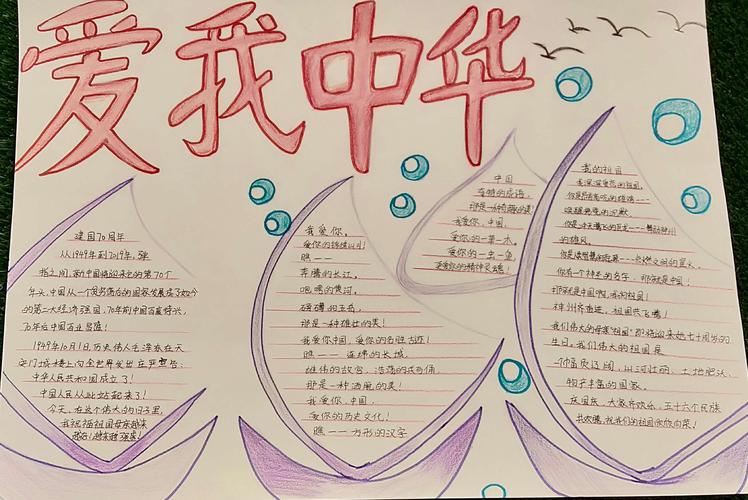 爱我中华
建国70周年
从1949年到2019年,弹
指之间,新中国将迎来它的第70个
年头,中国从一个贫穷落后的国家发展成了如今
的第二大经济强国,70年前中国百废待兴,
70年后中国百业昌盛!
1949年10月1日,历史伟人毛泽东在天
安门城楼上向全世界发出庄严宣告:
中华人民共和国成立了!
中国人民从此站起来了!
今天,在这个伟大的日子里,
我祝福祖国母亲越来
越好!越来越强盛!
我爱你,
爱你的锦绣山川!
瞧——
奔腾的长江,
咆哮的黄河,
磅礴的五岳,
那是一种雄壮的美!
我爱你中国,爱你的名胜古迹!
瞧——连绵的长城,
雄伟的故宫,浩荡的兵马俑,
那是一种洒脱的美!
我爱你,中国,
爱你的历史文化!
瞧——方形的汉字
中国
奇特的成语,
那是一种奇趣的美!
我爱你,中国,
爱你的一草一木,
爱你的一虫一鱼,
更爱你的精神灵魂!
我的祖国
我深深爱恋的祖国,
你是昂首高吭的雄鸡——
唤醒拂晓的沉默,
你是冲天腾飞的巨龙——舞动神州
的雄风,
你有一个神圣的名字,那就是中国!
那就是中国啊,我的祖国!
神州齐奋进,祖国共飞腾!
我们伟大的母亲"祖国"即将迎来她七十周岁的
生日。我们伟大的祖国是
幅员辽阔,山河壮丽,土地肥沃,
物产丰富的国家。
庆国庆,大家齐欢乐,五十六个民族
共欢腾,祝我们的祖国欣欣向荣!